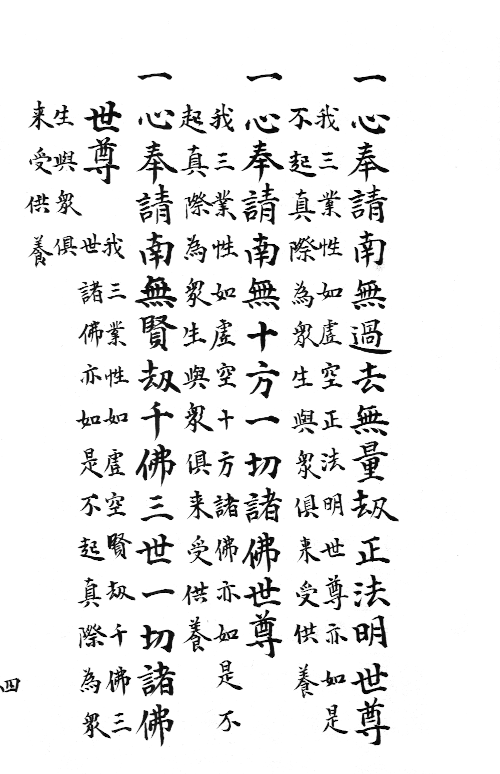 一心奉請南無過去無量劫正法明世尊
我三業性如虛空正法明世尊亦如是
不起真際為眾生與眾俱来受供養
一心奉請南無十方一切諸佛世尊
我三業性如虛空十方諸佛亦如是不
起真際為眾生與眾俱来受供養
一心奉請南無賢劫千佛三世一切諸佛
世尊
我三業性如虛空賢劫千佛三
世諸佛亦如是不起真際為眾
生與眾俱
来受供養
四